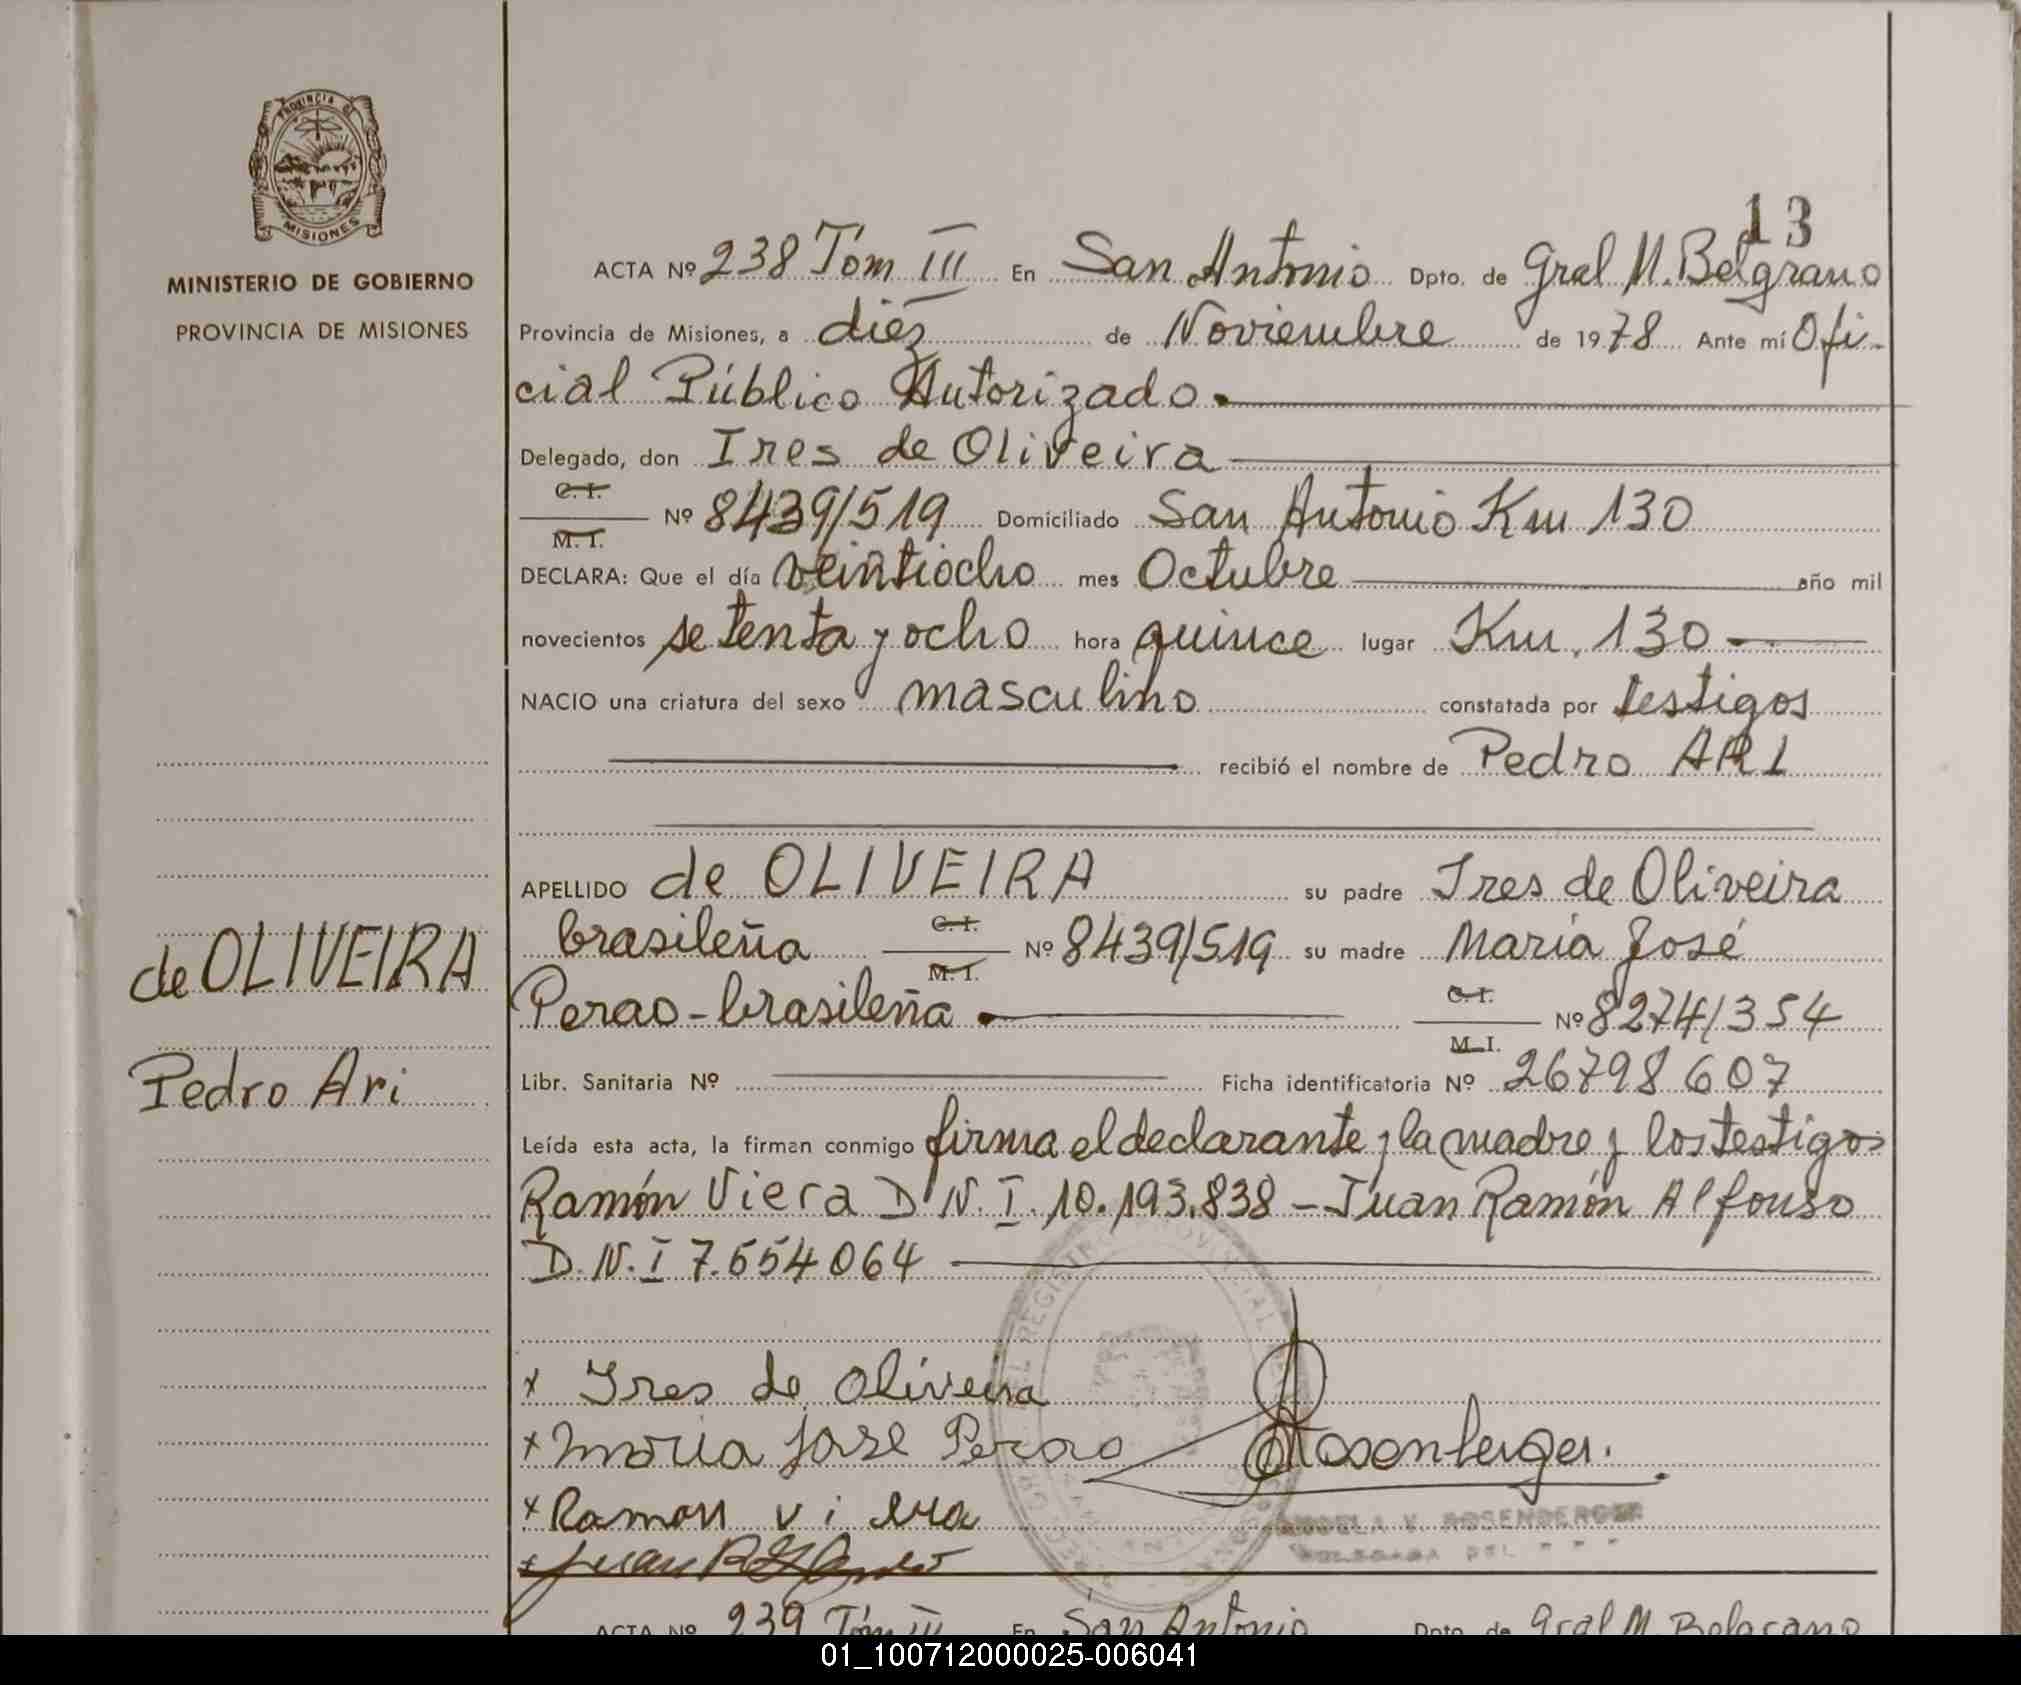 PROVINCIA DE
MISIONES
MINISTERIO DE GOBIERNO
PROVINCIA DE MISIONES
13
ACTA Nº 238 Tom III En San Antonio Dpto. de Gral M. Belgrano
Provincia de Misiones, a diez de Noviembre de 1978 Ante mí Ofi-
cial Público Autorizado.
Delegado, don Ires de Oliveira
C. I.
Nº 8439/519 Domiciliado San Antonio Km 130
M. I.
DECLARA: Que el día veintiocho mes Octubre año mil
novecientos setenta y ocho hora quince lugar Km. 130
NACIO una criatura del sexo masculino constatada por testigos
recibió el nombre de Pedro ARI
APELLIDO de OLIVEIRA su padre Ires de Oliveira
brasileña C. I. Nº 8439/519 su madre María José
M. I.
Perao - brasileña C. I. Nº 8274/354
M. I.
Libr. Sanitaria Nº Ficha identificatoria Nº 26798607
Leída esta acta, la firman conmigo firma el declarante y la madre y los testigos
Ramón Viera D.N.I. 10.193.838 - Juan Ramón Alfonso
D.N.I 7.654064
de OLIVEIRA
Pedro Ari
x Ires de Oliveira
x Moria Jose Perao Rosenberger.
x Ramon viera
x Juan R Alfonso
V. ROSENBERGER
ACTA Nº 239 Tóm III En San Antonio Dpto. de Gral M. Belgrano
01_100712000025-006041